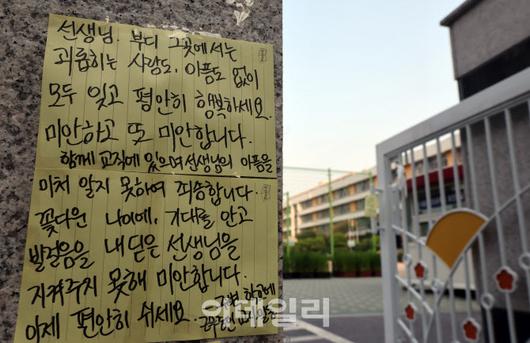 선생님. 부디 그곳에서는
괴롭히는 사람도, 아픔도 없이
모두 잊고 평안히 행복하세요.
미안하고 또 미안합니다.
함께 교직에 있으며 선생님의 아픔을
미처 알지 못하여 죄송합니다.
꽃다운 나이에, 기대를 안고
발걸음을 내딛은 선생님을
지켜주지 못해 미안합니다.
이제 편안히 쉬세요.
이데일리